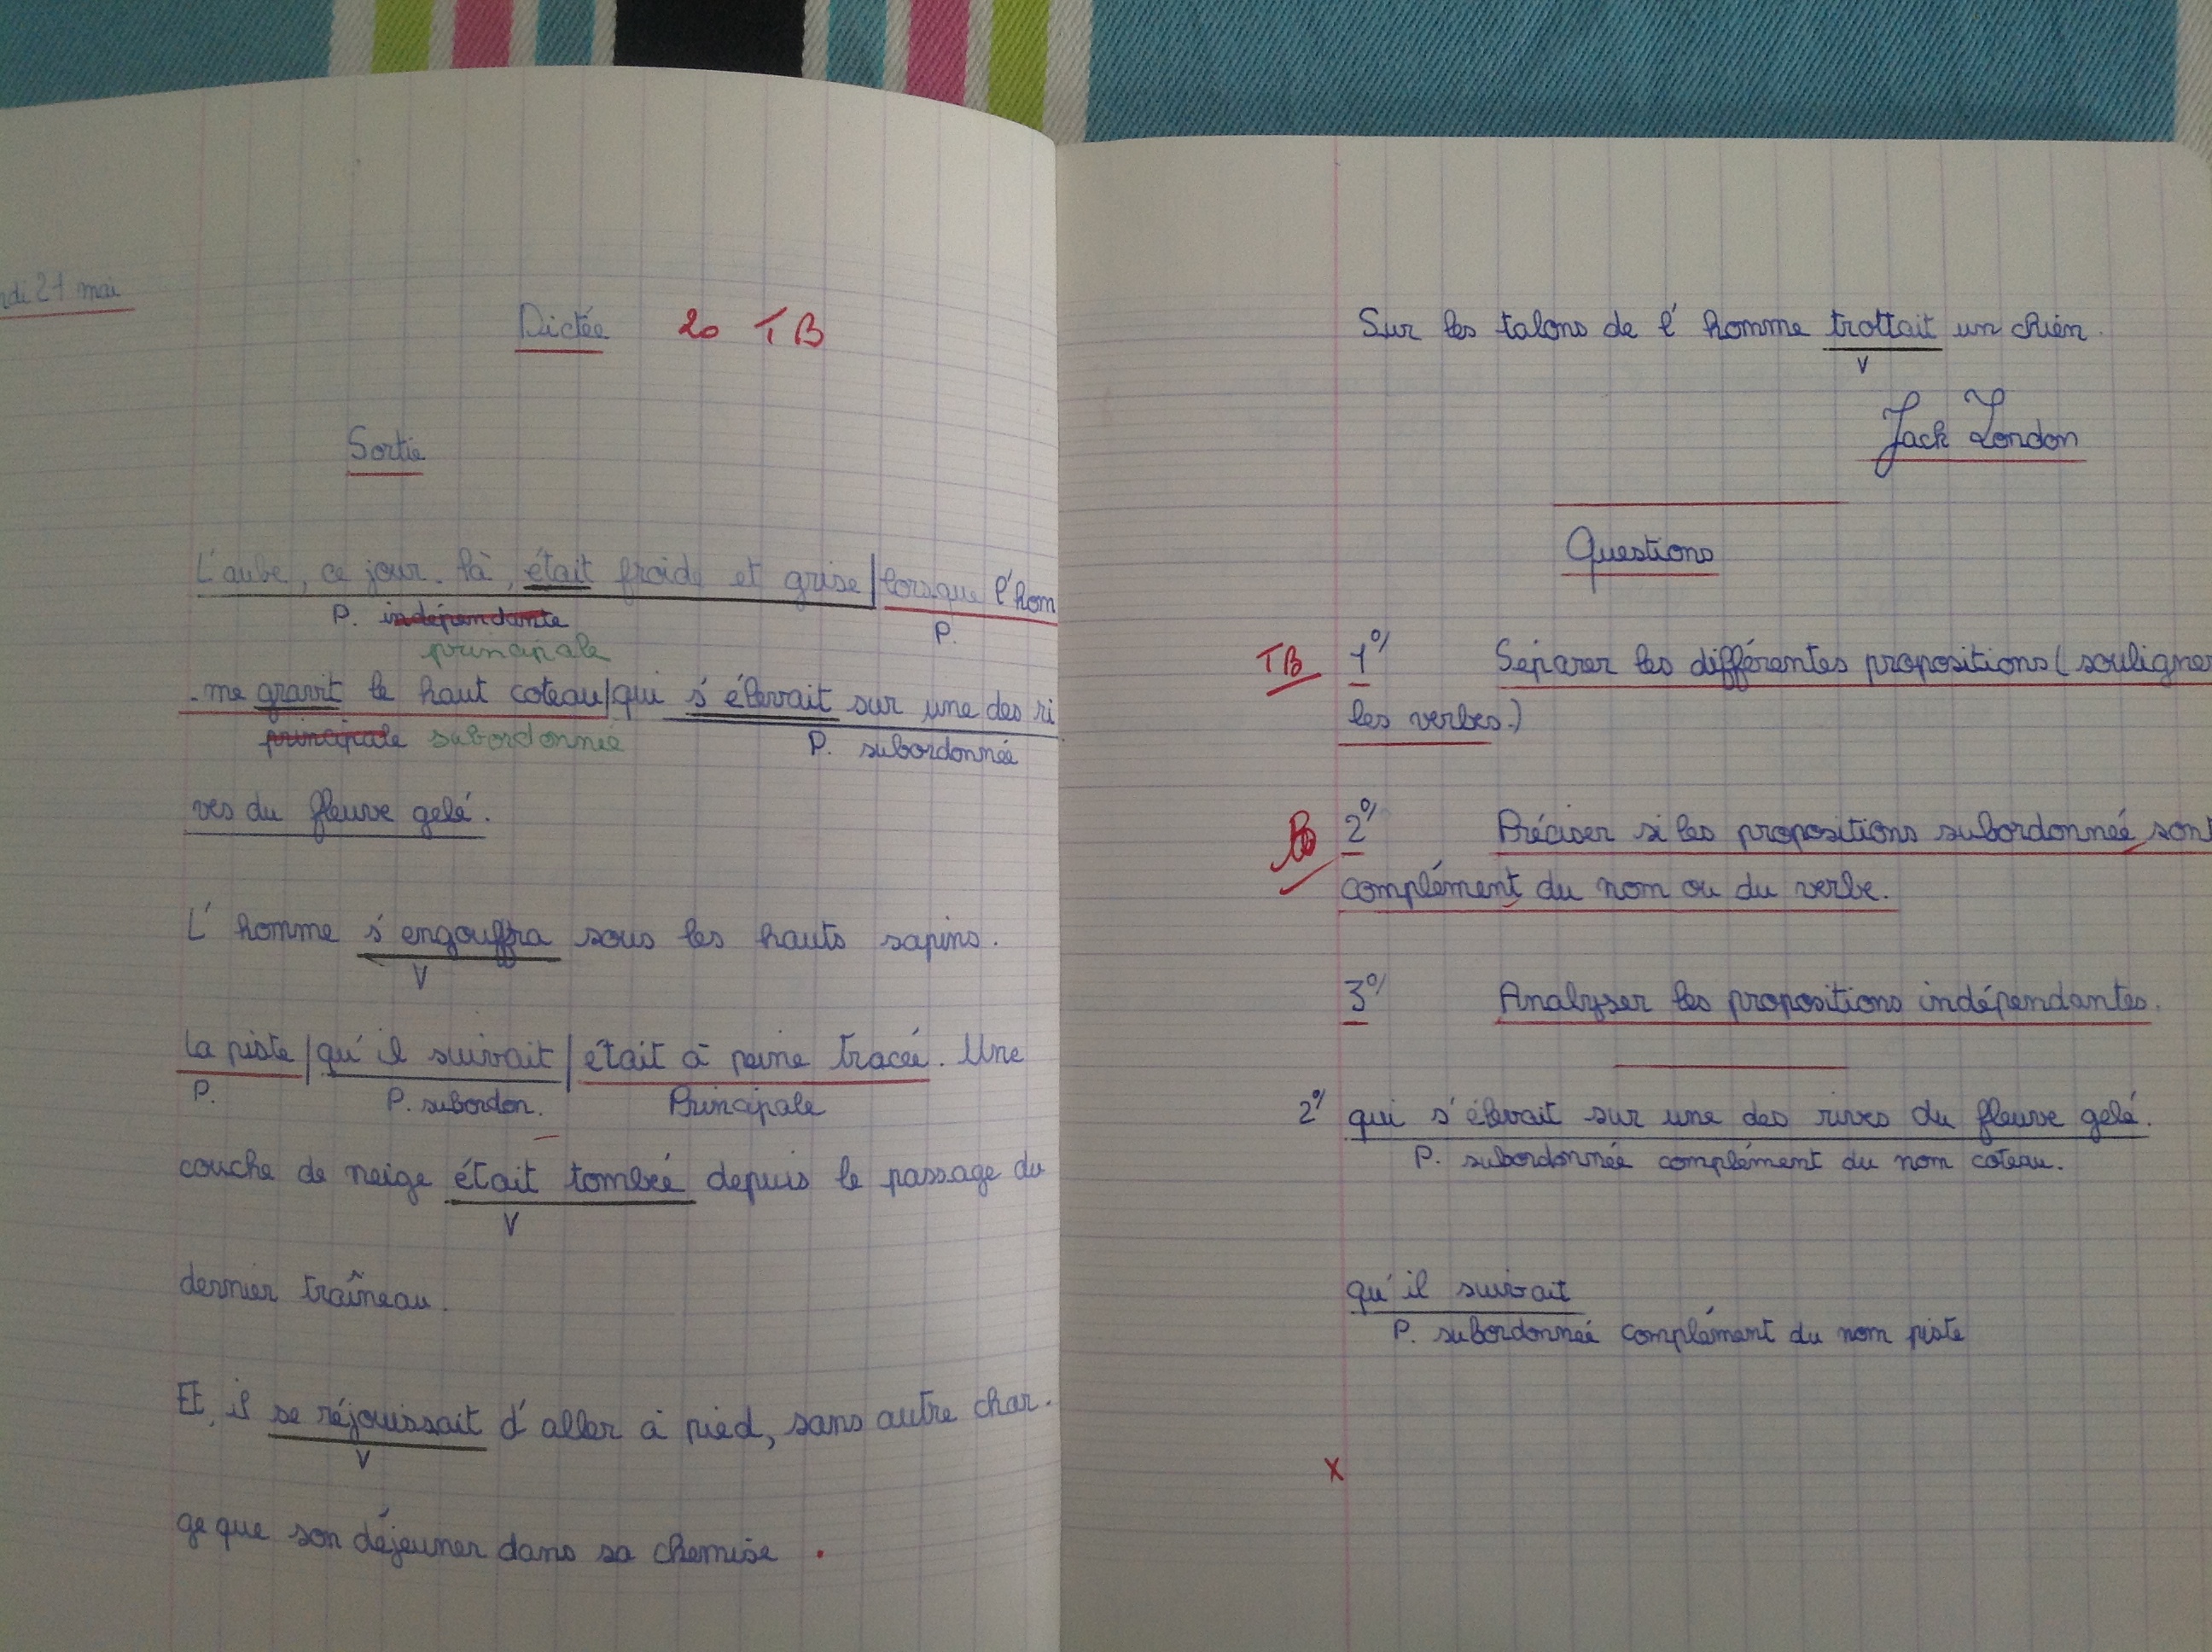 21 mai
Dictée 20 TB
Sortie
L'aube, ce jour-là, était froide et grise / lorsque l'hom
P. indépendante P.
principale
-me gravit le haut coteau / qui s'élevait sur une des ri
principale subordonnée P. subordonnée
ves du fleuve gelé.
L'homme s'engouffra sous les hauts sapins.
V
La piste / qu'il suivait / était à peine tracée. Une
P. P. subordon. Principale
couche de neige était tombée depuis le passage du
V
dernier traîneau.
Et, il se réjouissait d'aller à pied, sans autre char-
V
ge que son déjeuner dans sa chemise.
Sur les talons de l'homme trottait un chien.
V
Jack London
Questions
TB 1°/ Séparer les différentes propositions (souligner
les verbes.)
2°/ Préciser si les propositions subordonnée sont
complément du nom ou du verbe.
3°/ Analyser les propositions indépendantes.
2°/ qui s'élevait sur une des rives du fleuve gelé.
P. subordonnée complément du nom coteau.
qu'il suivait
P. subordonnée complément du nom piste
x